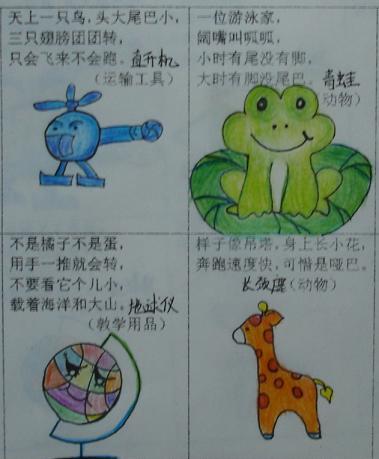 天上一只鸟,头大尾巴小,
三只翅膀团团转,
只会飞来不会跑。直升机
(运输工具)
一位游泳家,
阔嘴叫呱呱,
小时有尾没有脚,
大时有脚没尾巴。青蛙
动物)
不是橘子不是蛋,
用手一推就会转,
不要看它个儿小,
载着海洋和大山。地球仪
(教学用品)
样子像吊塔,身上长小花,
奔跑速度快,可惜是哑巴。
长颈鹿(动物)